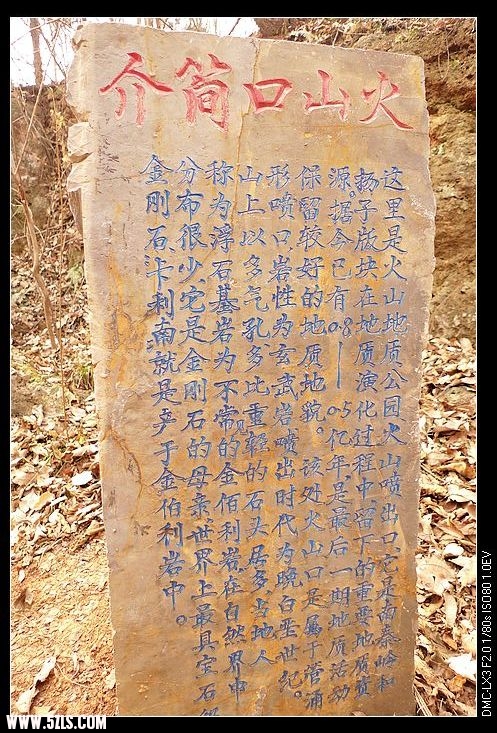 火山口简介
这里是火山地质公园火山喷出口,它是南秦岭和
扬子版块在地质演化过程中留下的重要地质资
源。据今已有0.8—0.5亿年是最后一期地质活动
保留较好的地质地貌。该处火山口是属于管涌
形喷口,岩性为玄武岩喷出时代为晚白垩世纪。
山上以多气孔多比重轻的石头居多,当地人
称为浮石基岩为不常见的金佰利岩在自然界中
分布很少,它是金刚石的母亲,世界上最具宝石
金刚石,卡利南就是产于金伯利岩中。
DMC-LX3 F2.0 1/80s ISO80 1.0EV
WWW.5ZLS.COM